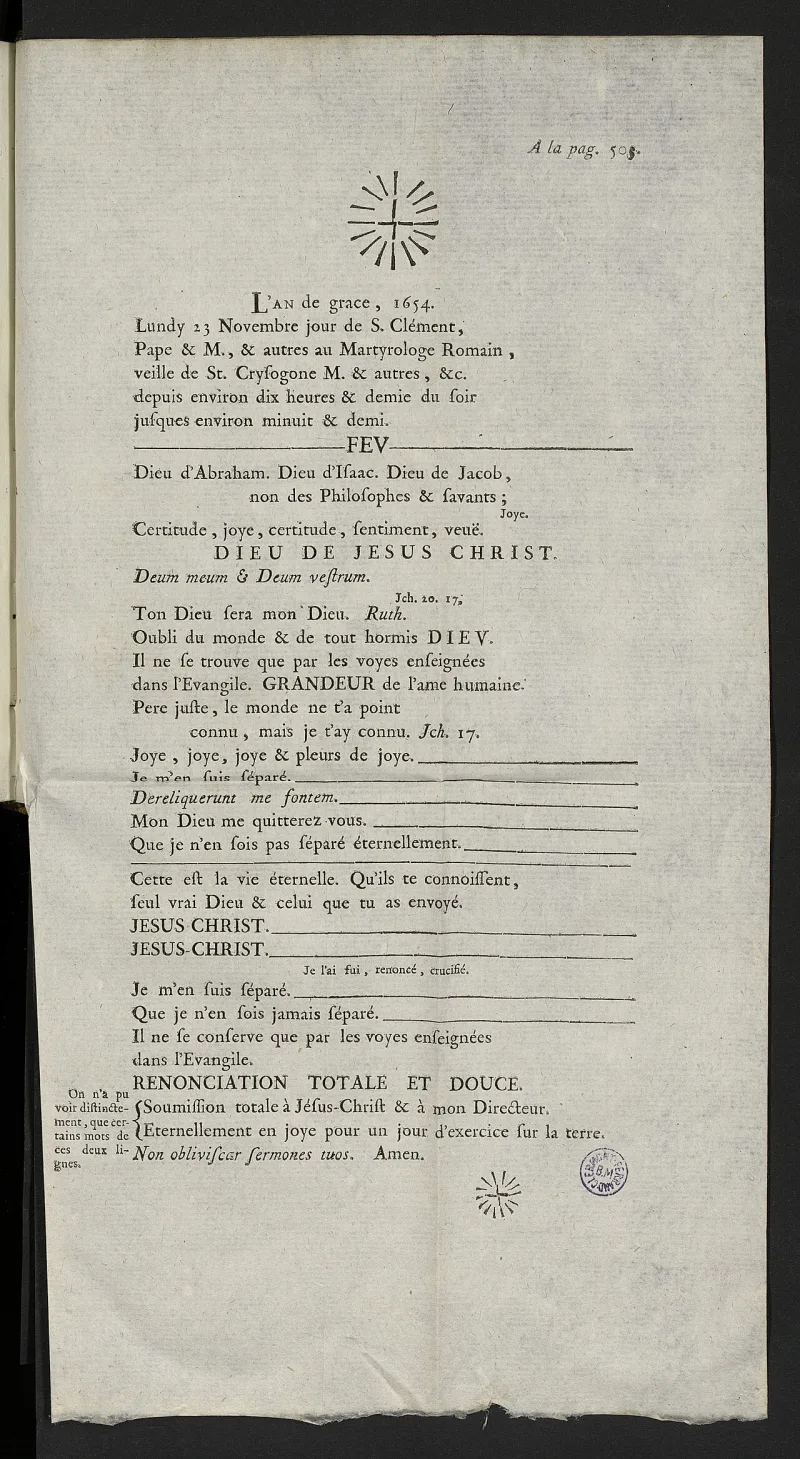 A la pag. 50
L'AN de grace, 1654.
Lundy 23 Novembre jour de S. Clément,
Pape & M., & autres au Martyrologe Romain,
veille de St. Cryſogone M. & autres, &c.
depuis environ dix heures & demie du ſoir
juſques environ minuit & demi.
FEV
Dieu d'Abraham. Dieu d'Iſaac. Dieu de Jacob,
non des Philoſophes & ſavants;
Joye.
Certitude, joye, certitude, ſentiment, veuë.
DIEU DE JESUS CHRIST.
Deum meum & Deum veſtrum.
Jch. 20. 17,
Ton Dieu ſera mon Dieu. Ruth.
Oubli du monde & de tout hormis DIEV.
Il ne ſe trouve que par les voyes enſeignées
dans l'Evangile. GRANDEUR de l'ame humaine.
Pere juſte, le monde ne t'a point
connu, mais je t'ay connu. Jch. 17.
Joye, joye, joye & pleurs de joye.
Je m'en ſuis ſéparé.
Dereliquerunt me fontem.
Mon Dieu me quitterez vous.
Que je n'en ſois pas ſéparé éternellement.
Cette eſt la vie éternelle. Qu'ils te connoiſſent,
ſeul vrai Dieu & celui que tu as envoyé.
JESUS CHRIST.
JESUS-CHRIST.
Je l'ai fui, renoncé, crucifié.
Je m'en ſuis ſéparé.
Que je n'en ſois jamais ſéparé.
Il ne ſe conſerve que par les voyes enſeignées
dans l'Evangile.
RENONCIATION TOTALE ET DOUCE.
On n'a pu
voir diſtincte-
ment, que cer-
tains mots de
ces deux li-
gnes.
Soumiſſion totale à Jéſus-Chriſt & à mon Directeur.
Eternellement en joye pour un jour d'exercice ſur la terre.
Non obliviſcar ſermones tuos. Amen.
B.M